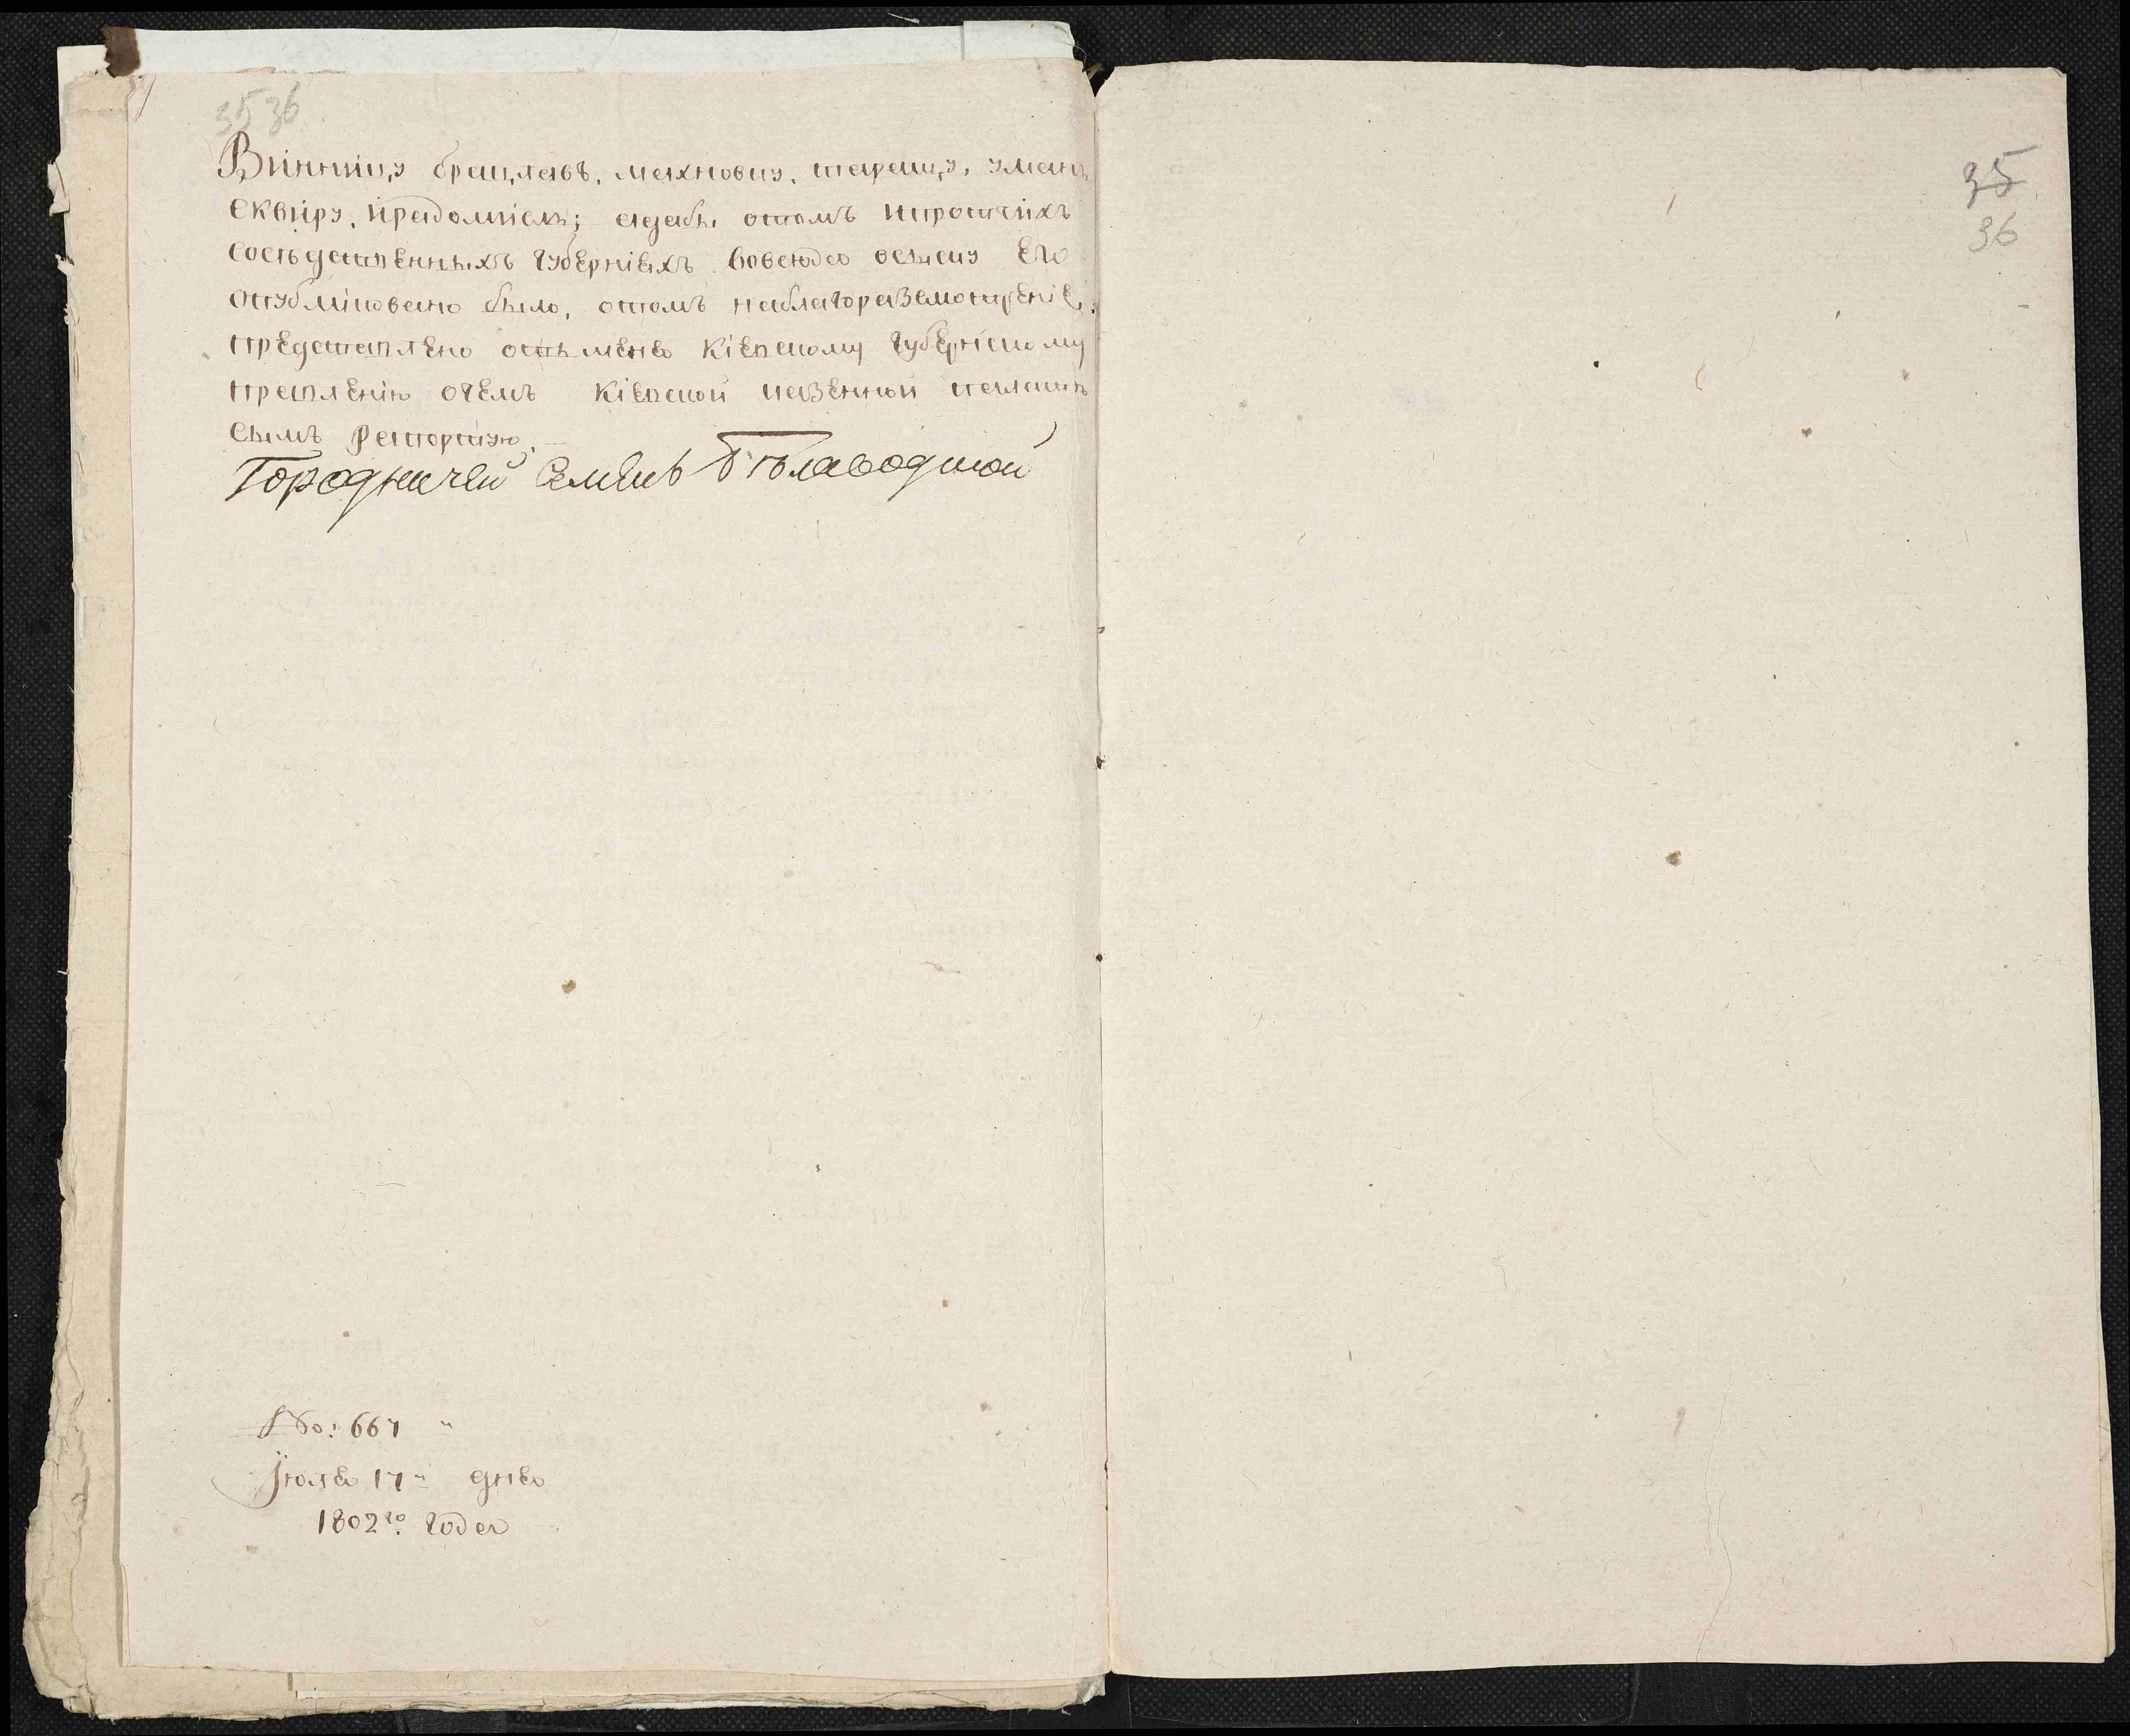 35 36
Винницу брацлавъ, махновку, таращу, умань
сквиру, ирадомислъ; адабы отомъ ипротчихъ
сосѣдственныхъ губернїяхъ вовсюдо осыску его
опубликовано было, отомъ наблагоразсмотренїе
представлено отъ меня Кїевскому губернскому
правленїю очемъ Кїевской казенной палатѣ
симъ рапортую.
Городничей Семенъ Белаводской
No: 667
Июля 17 дня
1802го. года
35
36